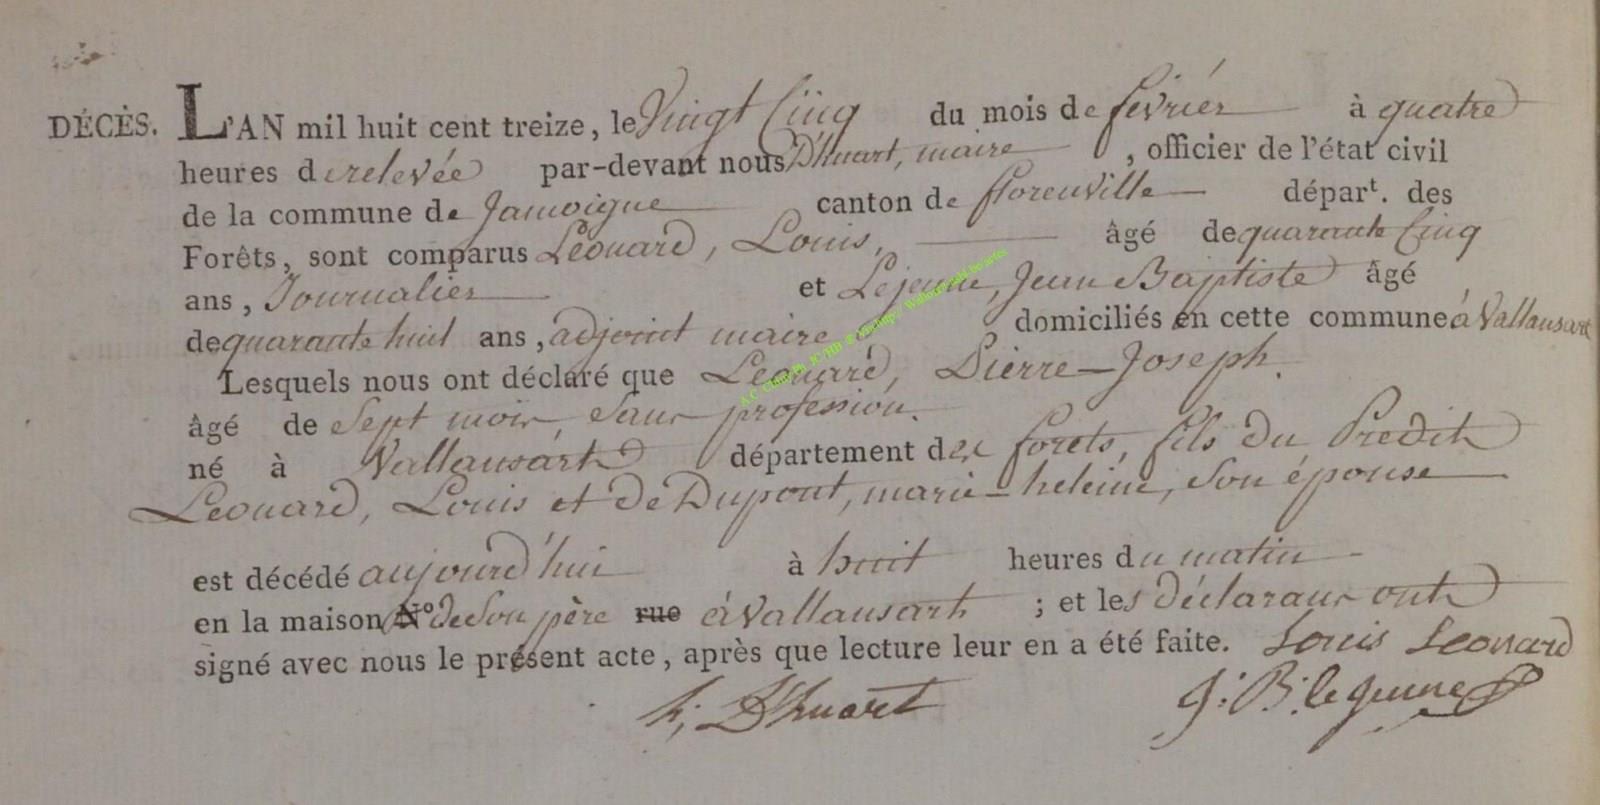 DÉCÈS. L'AN mil huit cent treize, le Vingt Cinq du mois de fevriér à quatre
heures de relevée par-devant nous D'huart, maire, officier de l'état civil
de la commune de Jamoigne canton de florenville départ. des
Forêts, sont comparus Léonard, Louis, âgé de quarante Cinq
ans, Journalier et Lejeune, Jean Baptiste âgé
de quarante huit ans, adjoint maire domiciliés en cette commune à Vallansart
Lesquels nous ont déclaré que Léonard, Pierre-Joseph.
âgé de Sept mois, Sans profession.
né à Vallansart département des forets, fils du Predit
Leonard, Louis et de Dupont, marie-heleine, Son épouse
est décédé aujourd'hui à huit heures du matin
en la maison N° de Son père rue à Vallansart ; et les déclarans ont
signé avec nous le présent acte, après que lecture leur en a été faite. Louis Leonard
h; D'huart J: B: le Jeune